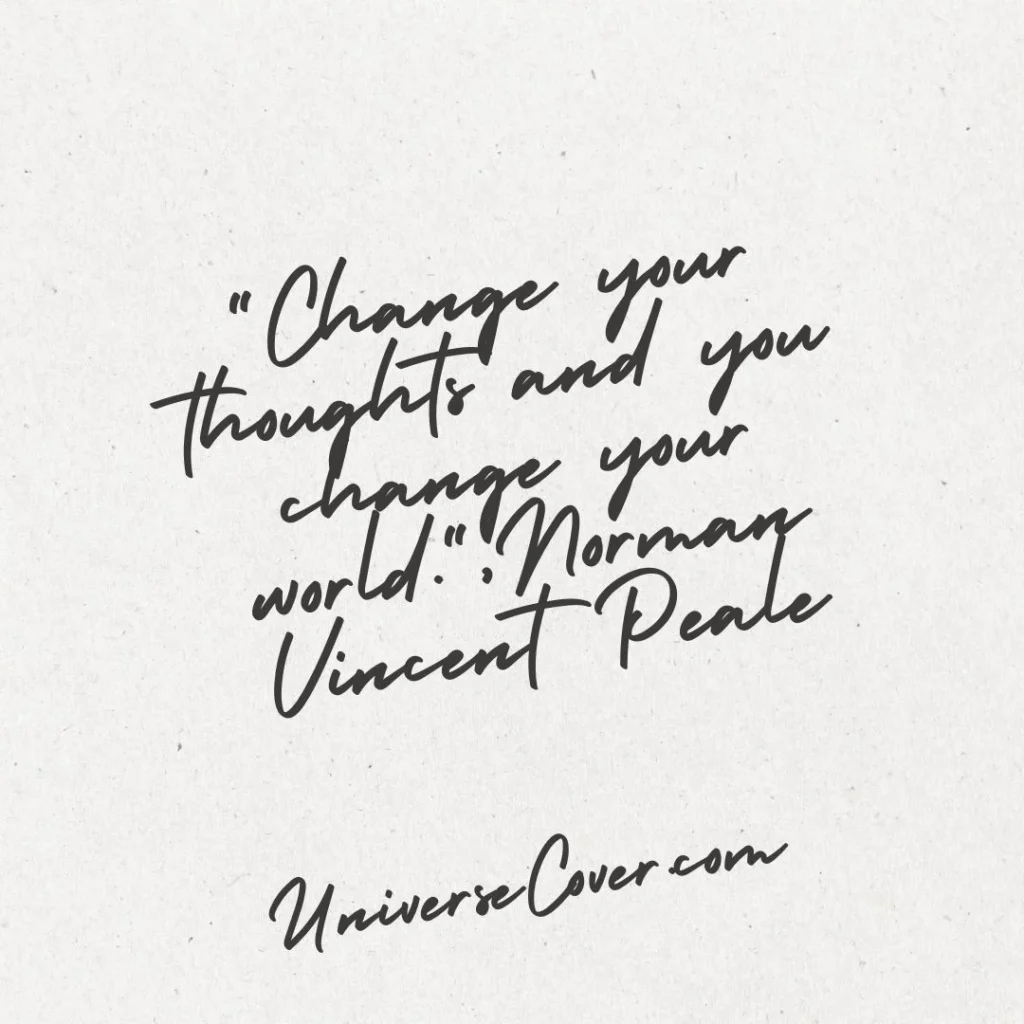 "Change your
thoughts and you
change your
world.", Norman
Vincent Peale
UniverseCover.com